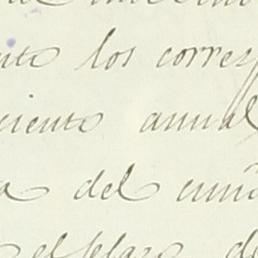 nto los corres
ciento annual
a del cuño
el plazo de